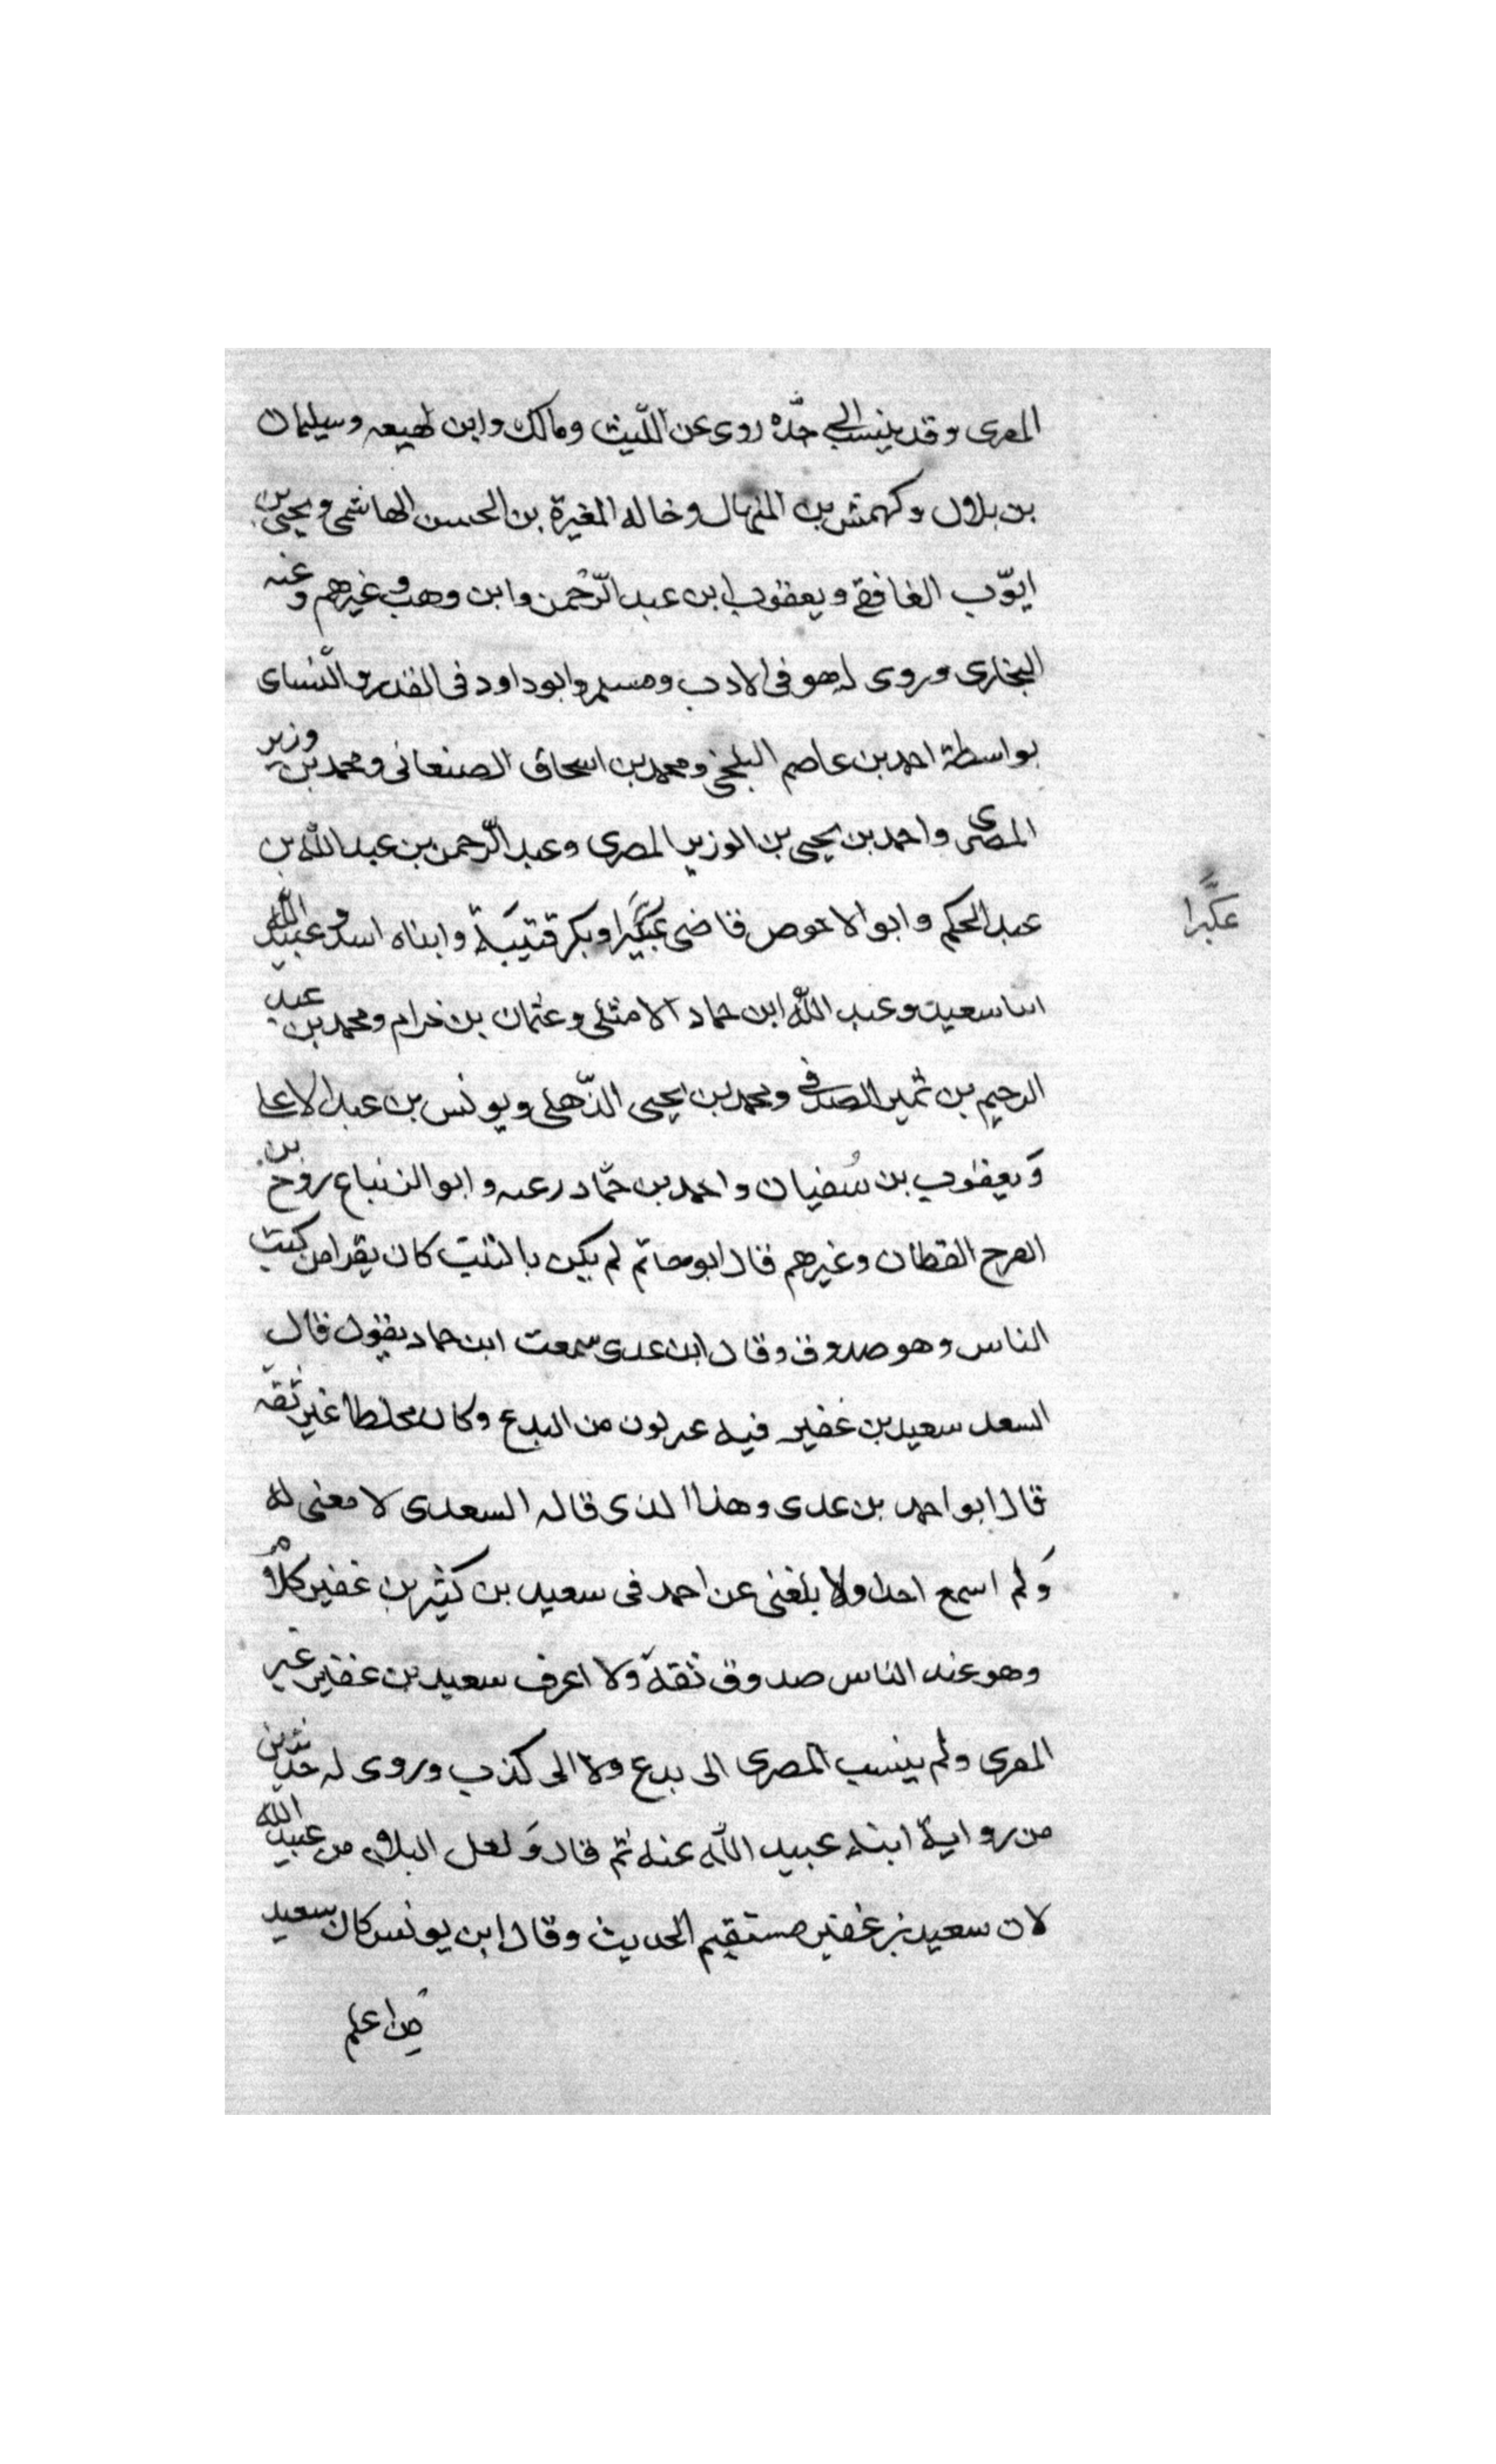 المصرى وقد ينسب الى جدّه روى عن اللّيث ومالك وابن لهيعه وسليمان
بن بلال وكهمش بن المنهال وخاله المغيرة بن الحسن الهاشمى ويحيى بن
ايوّب الغافقى ويعقوب ابن عبد الرّحمن وابن وهب وغيرهم وعنه
البخارى وروى له هو فى الادب ومسلم وابو داود فى القدر والنّساى
بواسطة احمد بن عاصم البلخى ومحمد بن اسحاق الصنعانى ومحمد بن وزير
المصرى واحمد بن يحيى بن الوزير المصرى وعبد الرّحمن بن عبد اللّه بن
عبد الحكم وابو الاحوص قاضى عكبرا وبكر قتيبة وابناه اسد وعبيد اللّه
عكبّرا
ابنا سعيد وعبد اللّه ابن حماد الامثلى وعثمان بن خرام ومحمد بن عبد
الرحيم بن ثمير الصدفى ومحمد بن يحيى الذّهلى ويونس بن عبد الاعلا
وَيعقوب بن سُفيان واحمد بن حمّاد رعبه وابو الزنباع روح بن
الفرج القطان وغيرهم قال ابو حاتم لم يكن بالثبت كان يقرا من كتب
الناس وهو صدوق وقال ابن عدى سمعت ابن حماد يقول قال
السعد سعيد بن غفير فيه عر لون من البدع وكان مخلطا غير ثقة
قال ابو احمد بن عدى وهذا الذى قاله السعدى لا معنى له
وَلم اسمع احدا ولا بلغنى عن احمد فى سعيد بن كثير بن غفير كلام
وهو عند الناس صدوق ثقة ولا اعرف سعيد بن غفير غير
المصرى ولم ينسب المصرى الى بدع ولا الى كذب وروى له حديثين
من رواية ابنه عبيد اللّه عنه ثم قال وَلعل البلاء من عبيد اللّه
لان سعيد بن غفير مستقيم الحديث وقال ابن يونس كان سعيد
من اعلم